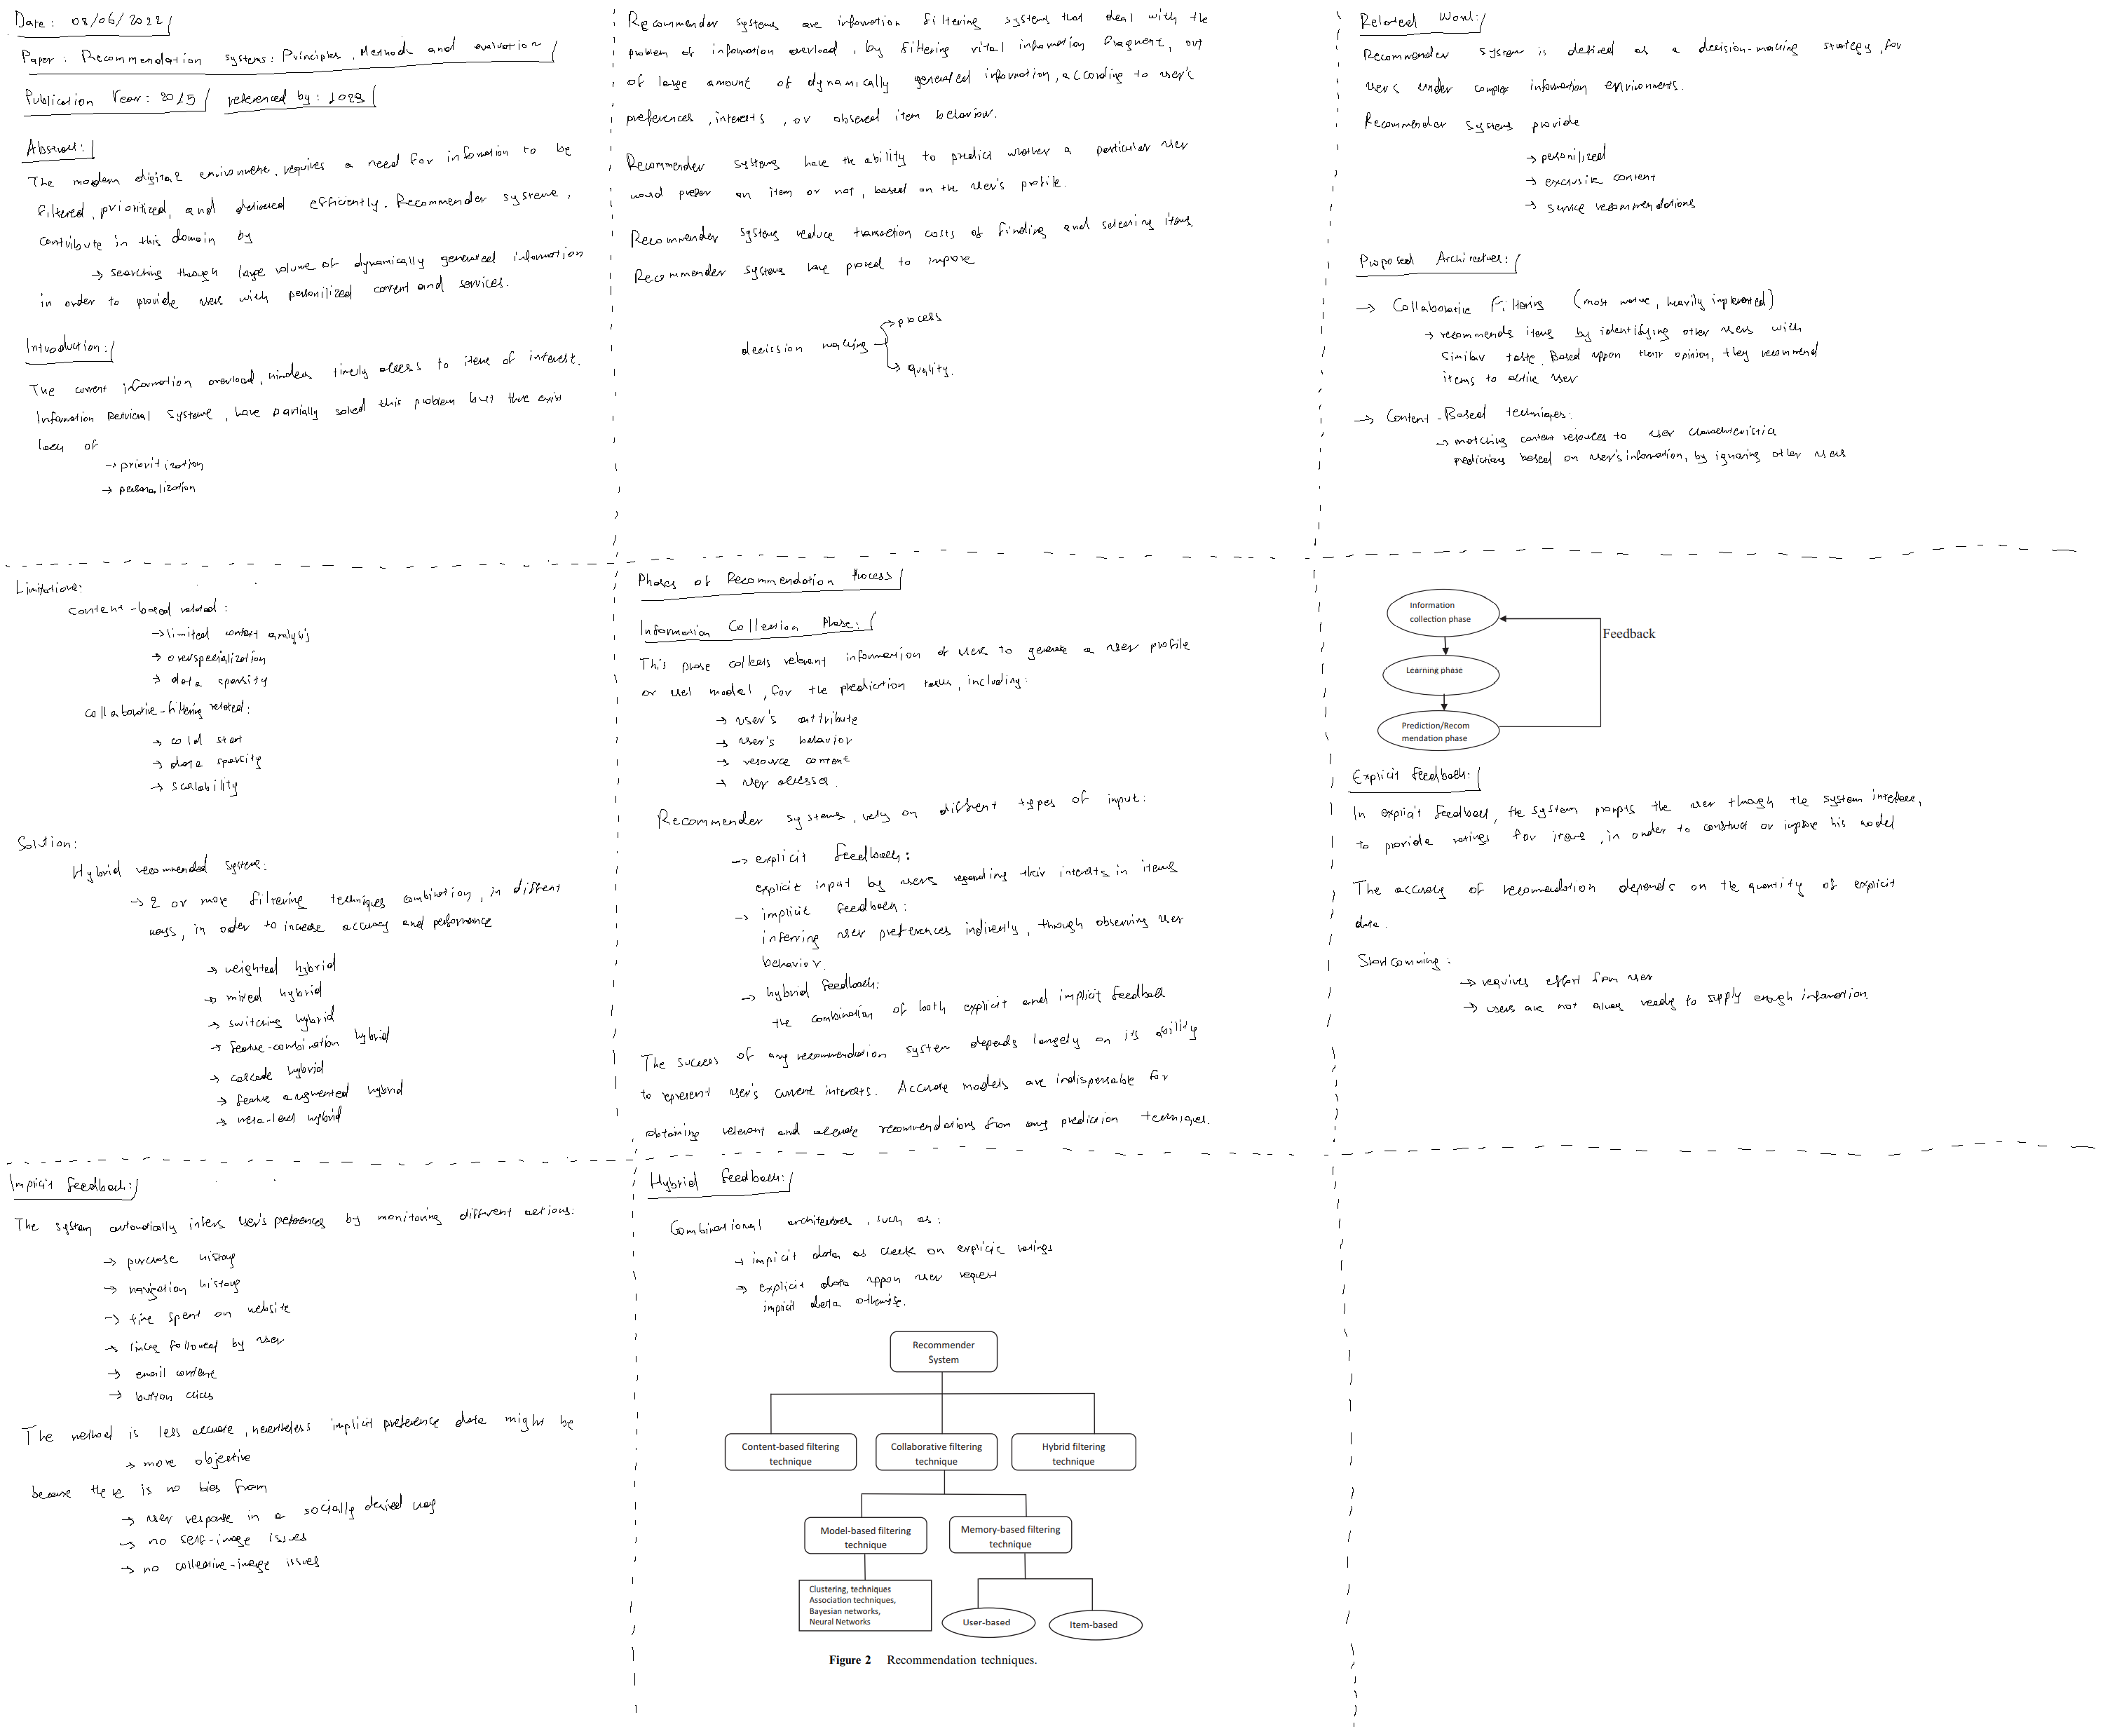 Date: 08/06/2022
Paper: Recommendation systems: Principles, Methods and evaluation
Publication Year: 2015 referenced by: 1029
Abstract:
The modern digital environment, requires a need for information to be
filtered, prioritized, and delivered efficiently. Recommender systems,
contribute in this domain by
→ searching through large volume of dynamically generated information
in order to provide users with personilized content and services.
Introduction:
The current information overload, hinders timely access to items of interest.
Information Retrieval Systems, have partially solved this problem but there exist
lack of
→ prioritization
→ personalization
Recommender systems are information filtering systems that deal with the
problem of information overload, by filtering vital information fragment, out
of large amount of dynamically generated information, according to user's
preferences, interests, or observed item behaviour.
Recommender systems have the ability to predict whether a particular user
would prefer an item or not, based on the user's profile.
Recommender systems reduce transaction costs of finding and selecting items
Recommender systems have proved to improve
decission making
→ process
→ quality.
Related Work:
Recommender system is defined as a decision-making strategy, for
users under complex information environments.
Recommender systems provide
→ personilized
→ exclusive content
→ service recommendations
Proposed Architecture:
→ Collaborative Filtering (most mature, heavily implemented)
→ recommends items by identifying other users with
similar taste. Based uppon their opinion, they recommend
items to active user
→ Content-Based techniques:
→ matching content resources to user characteristics
predictions based on user's information, by ignoring other users
Limitations:
content-based related:
→ limited content analysis
→ overspecialization
→ data sparsity
collaborative-filtering related:
→ cold start
→ data sparsity
→ scalability
Solution:
Hybrid recommended systems:
→ 2 or more filtering techniques combination, in different
ways, in order to increase accuracy and performance
→ weighted hybrid
→ mixed hybrid
→ switching hybrid
→ feature-combination hybrid
→ cascade hybrid
→ feature augmented hybrid
→ meta-level hybrid
Phases of Recommendation Process
Information Collection Phase:
This phase collects relevant information of users to generate a user profile
or user model, for the prediction tasks, including:
→ user's attribute
→ user's behavior
→ resource content
→ user accesses.
Recommender systems, rely on different types of input:
→ explicit feedback:
explicit input by users regarding their interests in items
→ implicit feedback:
inferring user preferences indirectly, through observing user
behavior.
→ hybrid feedback:
the combination of both explicit and implicit feedback
The success of any recommendation system depends largely on its ability
to represent user's current interests. Accurate models are indispensable for
obtaining relevant and accurate recommendations from any prediction techniques.
Information
collection phase
Feedback
Learning phase
Prediction/Recom
mendation phase
Explicit feedback:
In explicit feedback, the system prompts the user through the system interface,
to provide ratings for items, in order to construct or improve his model
The accuracy of recommendation depends on the quantity of explicit
data.
Shortcomming:
→ requires effort from user
→ users are not always ready to supply enough information.
Implicit feedback:
The system automatically infers user's preferences by monitoring different actions:
→ purchase history
→ navigation history
→ time spent on website
→ links followed by user
→ email content
→ button clicks
The method is less accurate, nevertheless implicit preference data might be
→ more objective
because there is no bias from
→ user response in a socially desired way
→ no self-image issues
→ no collective-image issues
Hybrid feedback:
Combinational architectures, such as:
→ implicit data as check on explicit ratings
→ explicit data uppon user request
implicit data otherwise.
Recommender
System
Content-based filtering
technique
Collaborative filtering
technique
Hybrid filtering
technique
Model-based filtering
technique
Memory-based filtering
technique
Clustering, techniques
Association techniques,
Bayesian networks,
Neural Networks
User-based
Item-based
Figure 2 Recommendation techniques.